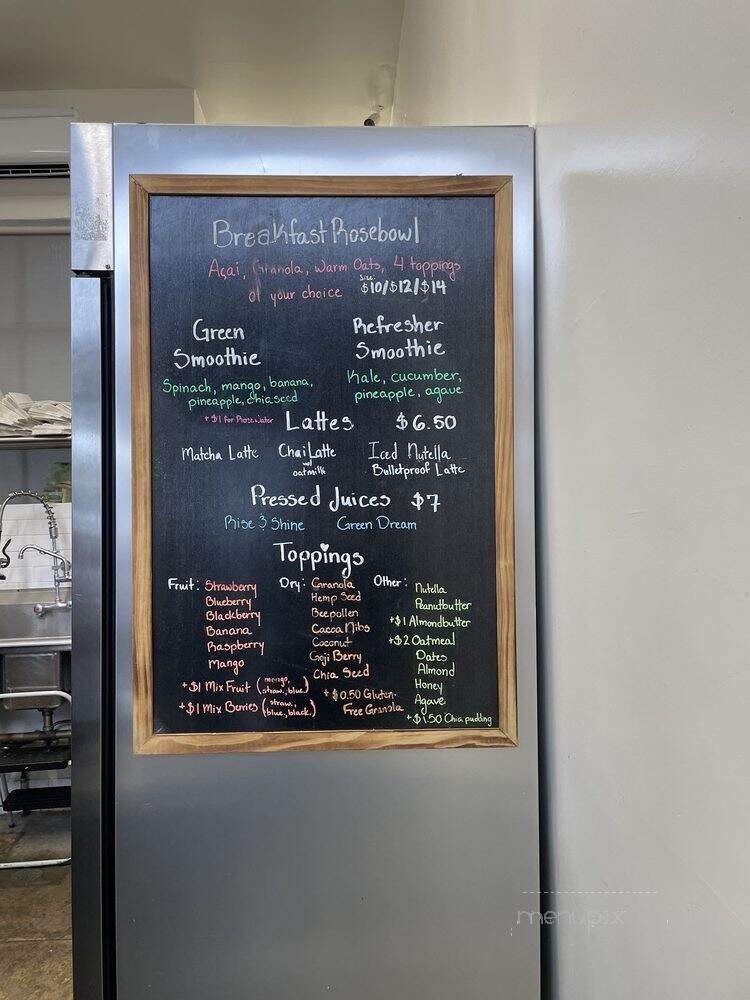 Breakfast Rosebowl
Açai, Granola, Warm Oats, 4 toppings
of your choice
Size:
$10/$12/$14
Green
Smoothie
Spinach, mango, banana,
pineapple, chiaseed
+$1 for Rosewater
Refresher
Smoothie
Kale, cucumber,
pineapple, agave
Lattes $6.50
Matcha Latte
Chai Latte
w/
oatmilk
Iced Nutella
Bulletproof Latte
Pressed Juices $7
Rise & Shine Green Dream
Toppings
Fruit: Strawberry
Blueberry
Blackberry
Banana
Raspberry
Mango
+$1 Mix Fruit (mango, straw., blue.)
+$1 Mix Berries (straw., blue., black.)
Dry: Granola
Hemp Seed
Beepollen
Cacao Nibs
Coconut
Goji Berry
Chia Seed
+$0.50 Gluten-
Free Granola
Other: Nutella
Peanutbutter
+$1 Almondbutter
+$2 Oatmeal
Dates
Almond
Honey
Agave
+$1.50 Chia pudding
menupix